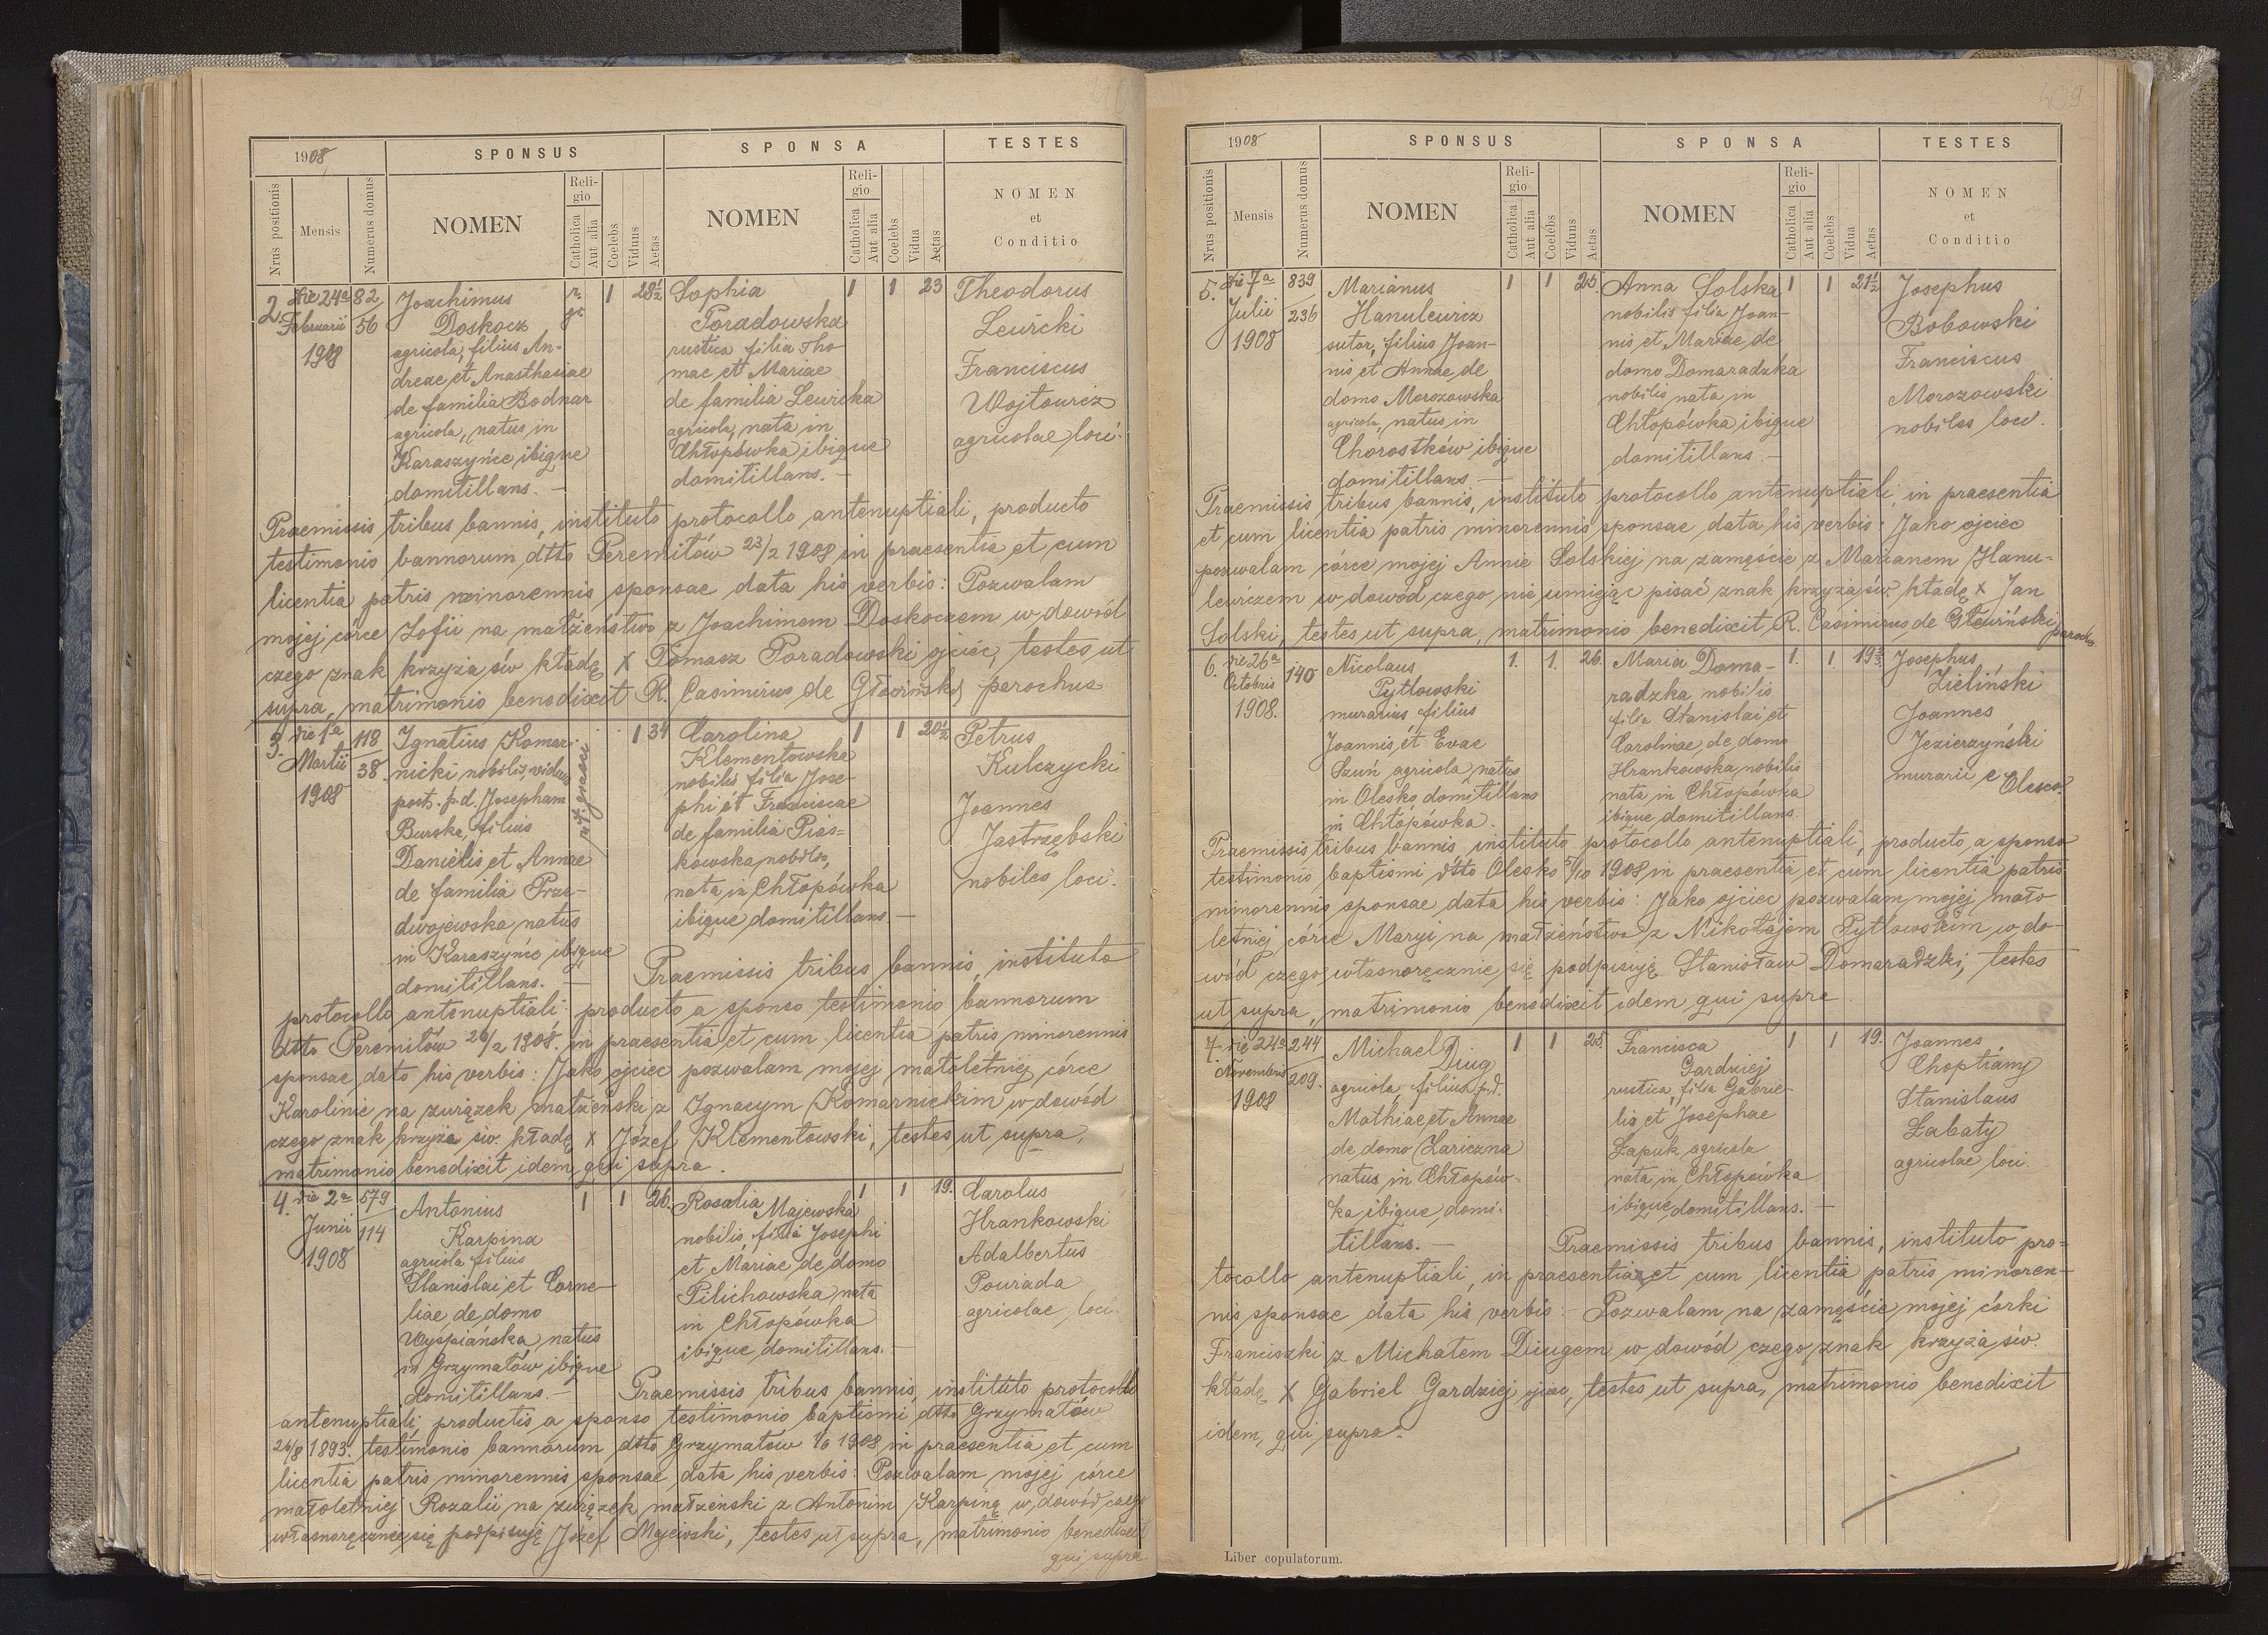 1908
SPONSUS
SPONSA
TESTES
Nrus positionis
Mensis
Numerus domus
NOMEN
Religio
Catholica
Aut alia
Coelebs
Viduus
Aetas
NOMEN
Religio
Catholica
Aut alia
Coelebs
Vidua
Aetas
NOMEN
et
Conditio
2. die 24a Februarii 1908
82
56
Joachimus
Doskocz
agricola, filius An-
dreae et Anasthasiae
de familia Bodnar
agricola, natus in
Karaszyńce ibique
domitillans. –
r. gr.
1 28½
Sophia
Poradowska
rustica filia Tho
mae et Mariae
de familia Lewicka
agricola, nata in
Chłopówka ibique
domitillans. –
1 1 23
Theodorus
Lewicki
Franciscus
Wojtowicz
agricolae loci.
Praemissis tribus bannis, instituto protocollo antenuptiali, producto
testimonio bannorum dtto Peremiłów 23/2 1908 in praesentia et cum
licentia patris minorennis sponsae data his verbis: Pozwalam
mojej córce Zofii na małżeństwo z Joachimem Doskoczem w dowód
czego znak krzyża św kładę x Tomasz Poradowski ojciec, testes ut
supra, matrimonio benedixit R. Casimirus de Głowiński parochus
3. die 1a Martii 1908
118
38
Ignatius Komar-
nicki nobilis, viduus
post. p.d. Josepham
Burska, filius
Danielis et Annae
de familia Prze-
dwojewska natus
in Karaszyńce ibique
domitillans. –
1 34
Carolina
Klementowska
nobilis filia Jose-
phi et Franciscae
de familia Pias-
kowska nobilis,
nata in Chłopówka
ibique domitillans –
1 1 20½
Petrus
Kulczycki
Joannes
Jastrzębski
nobiles loci.
Praemissis tribus bannis, instituto
protocollo antenuptiali producto a sponso testimonio bannorum
dtto Peremiłów 26/2 1908. in praesentia et cum licentia patris minorennis
sponsae dato his verbis: Jako ojciec pozwalam mojej małoletniej córce
Karolinie na związek małżeński z Ignacym Komarnickim w dowód
czego znak krzyża św. kładę x Józef Klementowski, testes ut supra,
matrimonio benedixit idem, qui supra.
4. die 2a Junii 1908
579
114
Antonius
Karpina
agricola filius
Stanislai et Corne-
liae de domo
Wyspiańska natus
in Grzymałów ibique
domitillans. –
1 1 26.
Rosalia Majewska
nobilis, filia Josephi
et Mariae de domo
Pilichowska nata
in Chłopówka
ibique domitillans. –
1 1 19.
Carolus
Hrankowski
Adalbertus
Pourada
agricolae loci.
Praemissis tribus bannis, instituto protocollo
antenuptiali, productis a sponso testimonio baptismi dtto Grzymałów
26/8 1893. testimonio bannorum dtto Grzymałow 1/6 1908 in praesentia et cum
licentia patris minorennis sponsae data his verbis: Pozwalam mojej córce
małoletniej Rozalii na związek małżenski z Antonim Karpiną w dowód czego
własnoręcznie się podpisuję Józef Majewski, testes ut supra, matrimonio benedixit
qui supra
409
1908
SPONSUS
SPONSA
TESTES
Nrus positionis
Mensis
Numerus domus
NOMEN
Religio
Catholica
Aut alia
Coelebs
Viduus
Aetas
NOMEN
Religio
Catholica
Aut alia
Coelebs
Vidua
Aetas
NOMEN
et
Conditio
5. die 7a Julii 1908
839
236
Marianus
Hanulewicz
sutor, filius Joan-
nis et Annae de
domo Morozowska
agricola, natus in
Chorostków ibique
domitillans –
1 1 25.
Anna Solska
nobilis filia Joan-
nis et Mariae de
domo Domaradzka
nobilis nata in
Chłopówka ibique
domitillans. –
1 1 21½
Josephus
Bobowski
Franciscus
Morozowski
nobiles loci.
Praemissis tribus bannis, instituto protocollo antenuptiali, in praesentia
et cum licentia patris minorennis sponsae data his verbis: Jako ojciec
pozwalam córce mojej Annie Solskiej na zamęście z Marianem Hanu-
lewiczem w dowód czego nie umiejąc pisać znak krzyża św. kładę x Jan
Solski, testes ut supra, matrimonio benedixit R. Casimirus de Głowiński parochus
6. die 26a Octobris 1908.
140
Nicolaus
Pytlowski
murarius filius
Joannis et Evae
Szuń agricola, natus
in Olesko domitillans
in Chłopówka.
1. 1. 26.
Maria Doma-
radzka nobilis
filia Stanislai et
Carolinae de domo
Hrankowska nobilis
nata in Chłopówka
ibique domitillans.
1. 1. 19
Josephus
Zieliński
Joannes
Jezierzyński
murarii e Olesco.
Praemissis tribus bannis instituto protocollo antenuptiali, producto a sponso
testimonio baptismi dtto Olesko 5/10 1908 in praesentia et cum licentia patris
minorennis sponsae data his verbis: Jako ojciec pozwalam mojej mało
letniej córce Maryi na małżeństwo z Mikołajem Pytlowskim w do-
wód czego własnoręcznie się podpisuję Stanisław Domaradzki, testes
ut supra, matrimonio benedixit idem qui supra.
7. die 24a Novembris 1908
244
209.
Michael Diug
agricola, filius p.d.
Mathiae et Annae
de domo Zariczna
natus in Chłopów-
ka ibique domi-
tillans. –
1 1 25.
Francisca
Gardziej
rustica, filia Gabrie-
lis et Josephae
Łapuk agricola
nata in Chłopówka
ibique domitillans. –
1 1 19.
Joannes
Choptiany
Stanislaus
Łabaty
agricolae loci.
Praemissis tribus bannis, instituto pro-
tocollo antenuptiali, in praesentia et cum licentia patris minoren-
nis sponsae data his verbis: Pozwalam na zamęście mojej córki
Franciszki z Michałem Diugem w dowód czego znak krzyża św.
kładę x Gabriel Gardziej ojciec, testes ut supra, matrimonio benedixit
idem, qui supra.
Liber copulatorum.